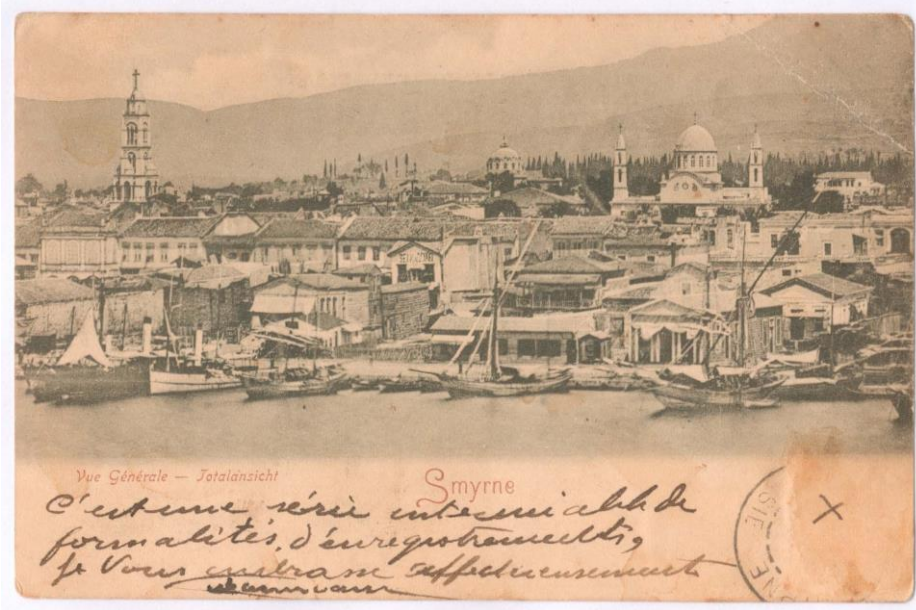 Vue Générale — Totalansicht
Smyrne
C'est une série interminable de
formalités, d'enregistrements,
Je Vous embrasse affectueusement
SIE
NE
X